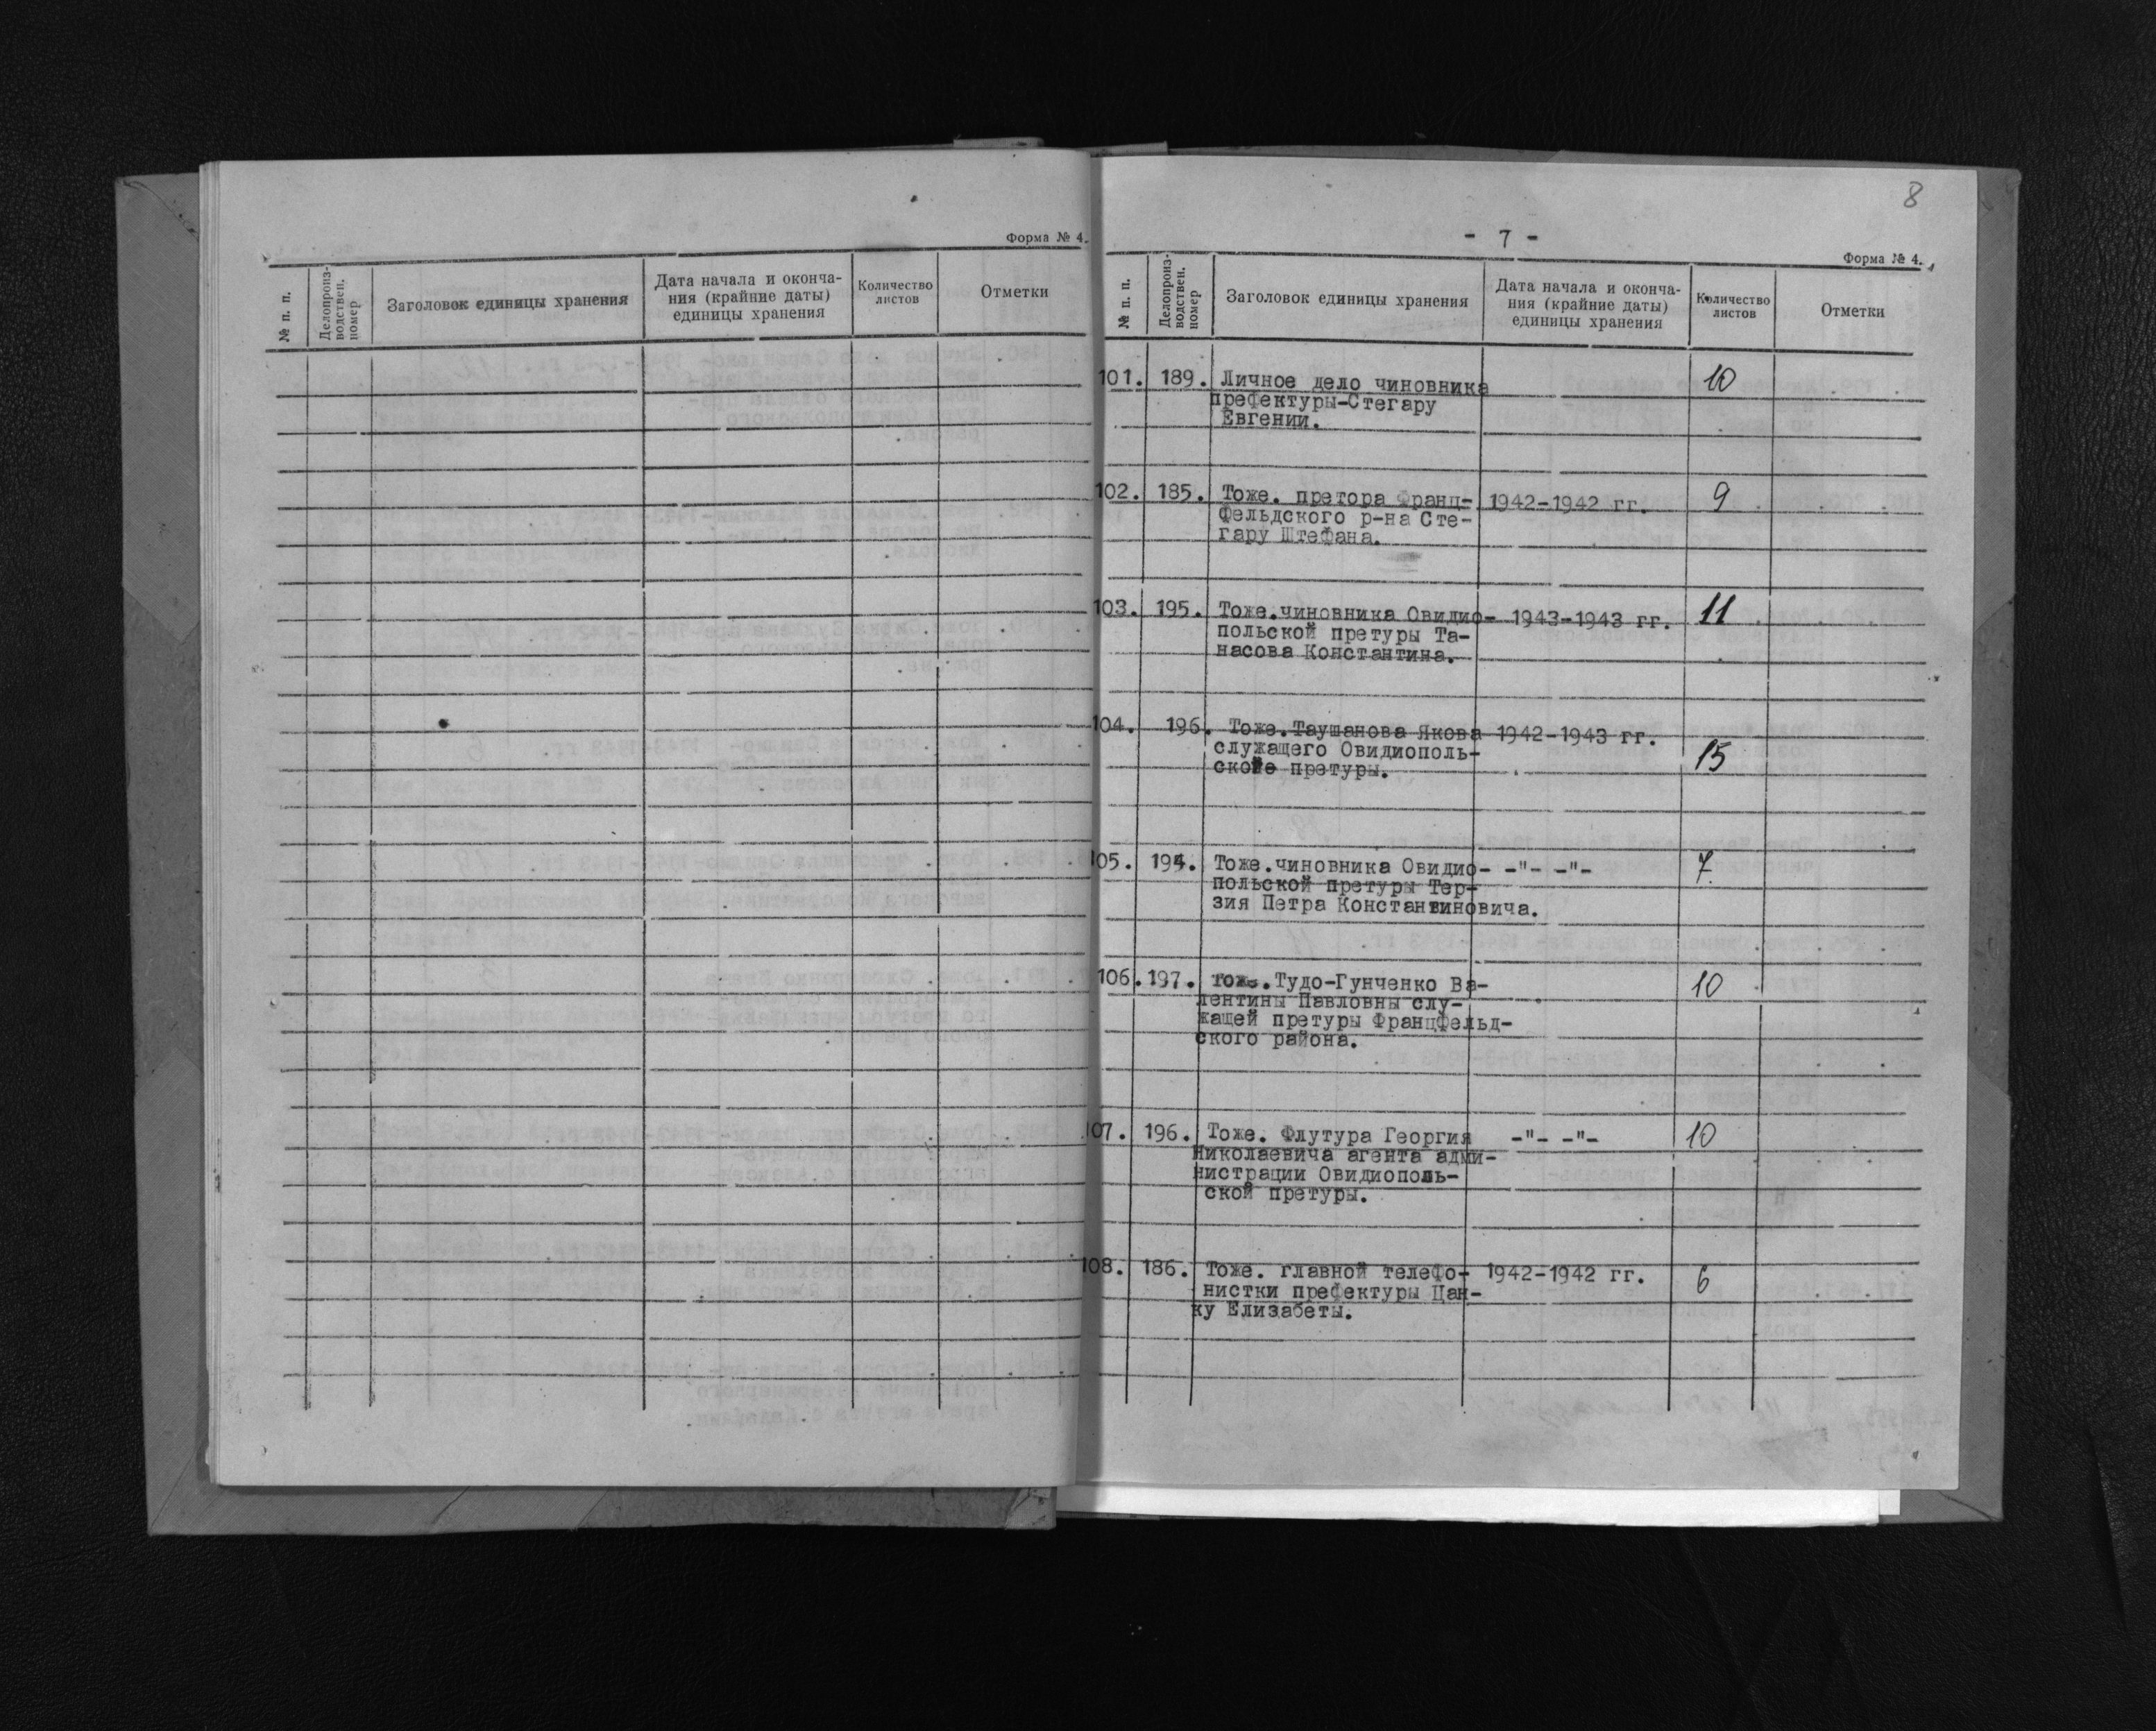 Форма № 4.
№ п. п.
Делопроиз-
водствен.
номер
Заголовок единицы хранения
Дата начала и оконча-
ния (крайние даты)
единицы хранения
Количество
листов
Отметки
8
- 7 -
Форма № 4.
№ п. п.
Делопроиз-
водствен.
номер
Заголовок единицы хранения
Дата начала и оконча-
ния (крайние даты)
единицы хранения
Количество
листов
Отметки
101. 189. Личное дело чиновника 10
префектуры-Стегару
Евгении.
102. 185. Тоже. претора Франц- 1942-1942 гг. 9
фельдского р-на Сте-
гару Штефана.
103. 195. Тоже.чиновника Овидио- 1943-1943 гг. 11
польской претуры Та-
насова Константина.
104. 196. Тоже.Таушанова Якова 1942-1943 гг.
служащего Овидиополь- 15
ской претуры.
105. 194. Тоже.чиновника Овидио- -"- -"- 7.
польской претуры Тер-
зия Петра Константиновича.
106. 197. тоже.Тудо-Гунченко Ва- 10
лентины Павловны слу-
жащей претуры Францфельд-
ского района.
107. 196. Тоже. Флутура Георгия -"- -"- 10
Николаевича агента адми-
нистрации Овидиополь-
ской претуры.
108. 186. Тоже. главной телефо- 1942-1942 гг. 6
нистки префектуры Цан-
ку Елизабеты.